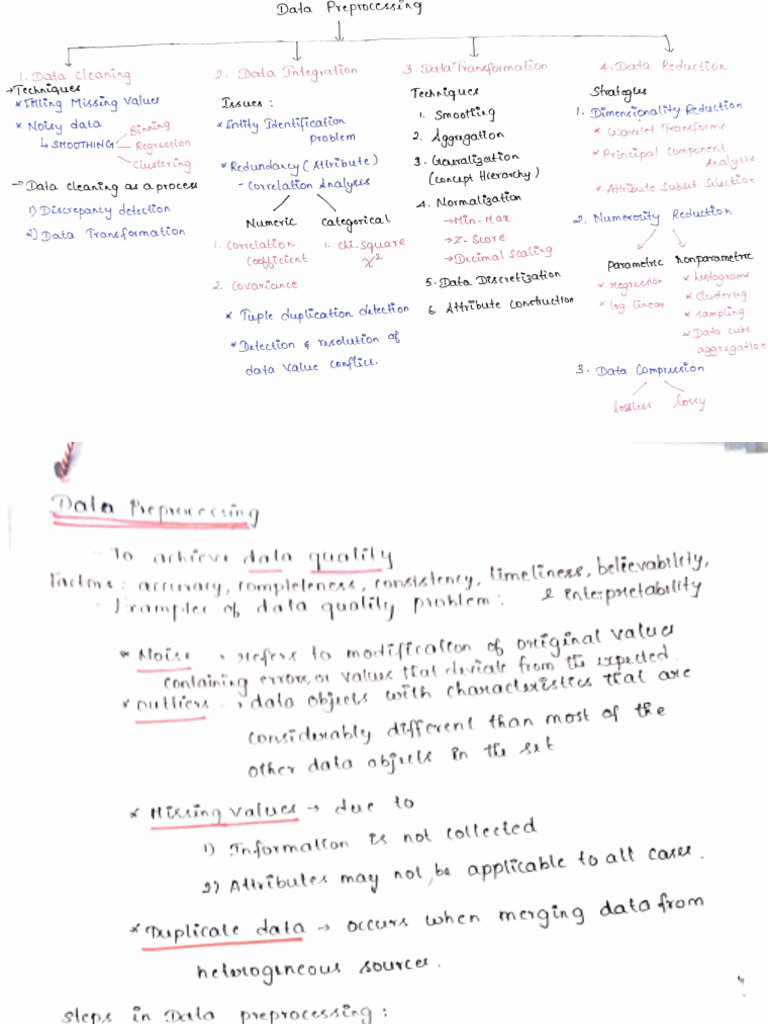 Data Preprocessing
1. Data Cleaning
→Techniques
* Filling Missing Values
* Noisy data
↳ SMOOTHING
Binning
Regression
Clustering
→ Data cleaning as a process
1) Discrepancy detection
2) Data Transformation
2. Data Integration
Issues :
* Entity Identification
problem
* Redundancy (Attribute)
- Correlation Analysis
Numeric
Categorical
1. Correlation
coefficient
2. Covariance
1. chi. square
χ²
* Tuple duplication detection
* Detection & resolution of
data value conflict.
3. Data Transformation
Techniques
1. Smoothing
2. Aggregation
3. Generalization
(concept Hierarchy)
4. Normalization
→ Min-Max
→ Z-Score
→ Decimal Scaling
5. Data Discretization
6. Attribute Construction
4. Data Reduction
Strategies
1. Dimensionality Reduction
* Wavelet Transforms
* Principal Component
Analysis
* Attribute Subset Selection
2. Numerosity Reduction
parametric
* regression
* log linear
nonparametric
* histograms
* clustering
* sampling
* Data cube
aggregation
3. Data Compression
lossless
lossy
Data Preprocessing
- To achieve data quality
Factors : accuracy, completeness, consistency, timeliness, believability,
& interpretability
- Examples of data quality problem :
* Noise → refers to modification of original values
containing errors, or values that deviate from the expected.
* outliers → data objects with characteristics that are
considerably different than most of the
other data objects in the set
* Missing values → due to
1) Information is not collected
2) Attributes may not, be applicable to all cases.
* Duplicate data → occurs when merging data from
heterogeneous sources.
Steps in Data preprocessing :